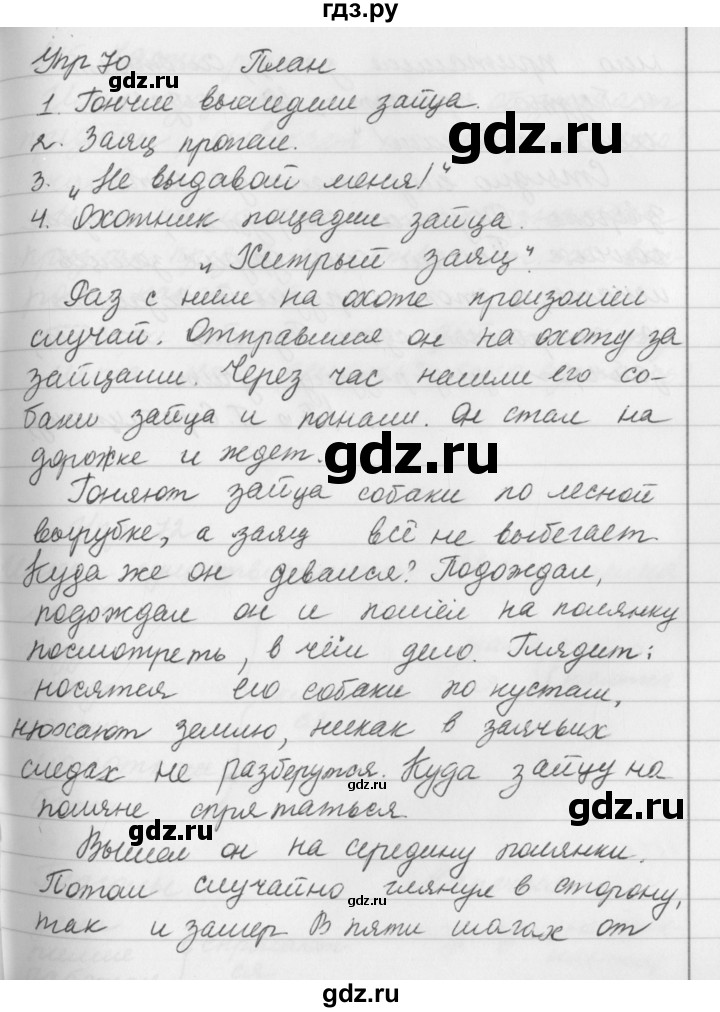 гдз.ру
Упр 70 План
1. Гончие выследили зайца.
gdz.ru
2. Заяц пропал.
3. „Не выдавай меня!"
4. Охотник пощадил зайца.
„Хитрый заяц".
Раз с ним на охоте произошёл
случай. Отправился он на охоту за
зайцами. Через час нашли его со-
баки зайца и погнали. Он стал на
дорожке и ждет.
gdz.ru
Гоняют зайца собаки по лесной
вырубке, а заяц всё не выбегает.
Куда же он девался? Подождал,
подождал он и пошёл на полянку
посмотреть, в чём дело. Глядит:
носятся его собаки по кустам,
нюхают землю, никак в заячьих
следах не разберутся. Куда зайцу на
gdz.ru
поляне спрятаться.
gdz.ru
gdz.ru
Вышел он на середину полянки.
Потом случайно глянул в сторону,
gdz.ru
так и замер В пяти шагах от
gdz.ru
gdz.ru